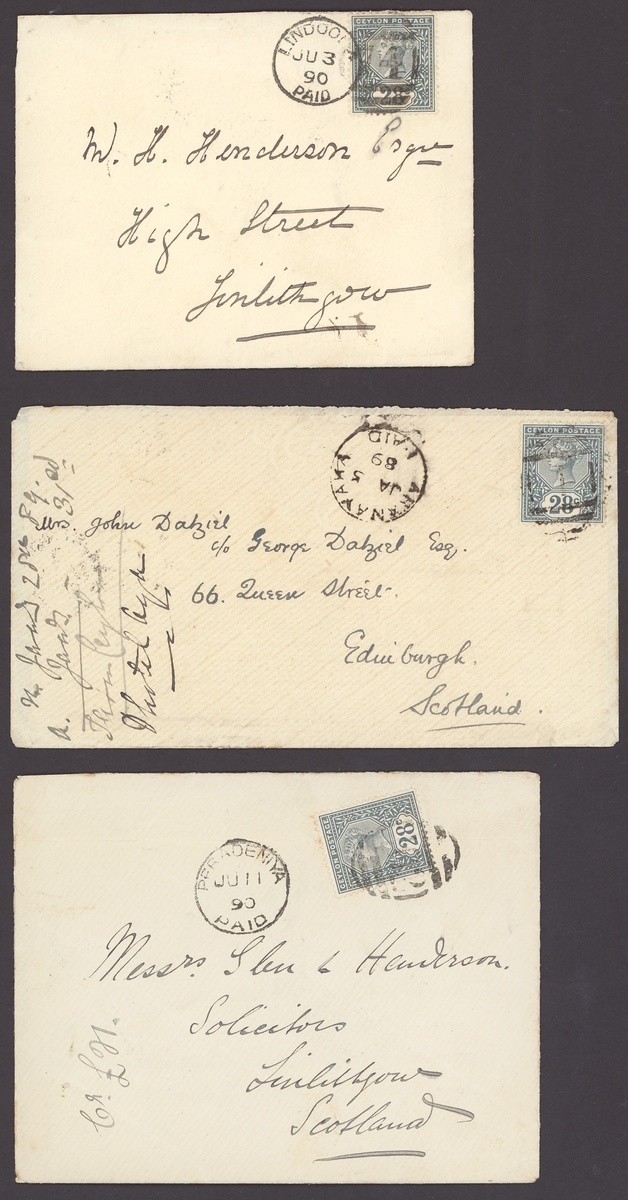 CEYLON POSTAGE
LINDOOLA
JU 3
90
PAID
28
W. H. Henderson Esqre
High Street
Linlithgow
CEYLON POSTAGE
28
PAID
89
JA 5
ARANAYAKA
Mrs. John Dalziel
c/o George Dalziel Esq.
66. Queen Street.
Edinburgh.
Scotland.
CEYLON POSTAGE
28c
PERADENIYA
JU 11
90
PAID
Messrs. Glen & Henderson.
Solicitors
Linlithgow
Scotland